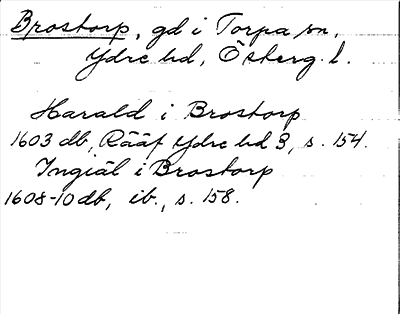 Brostorp, gd i Torpa sn,
Ydre hd, Österg. l.
Harald i Brostorp
1603 db, Rääf Ydre hd 3, s. 154.
Ingiäl i Brostorp
1608-10 db, ib., s. 158.